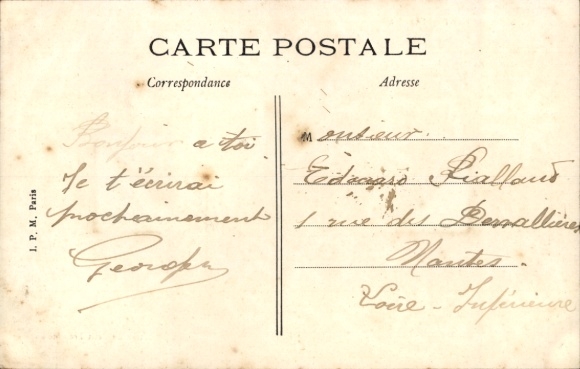 CARTE POSTALE
Correspondance
Adresse
Bonjour a toi
Je t'écrirai
prochainement
Georges
Monsieur.
Edouard Rialland
1 rue des Dervallières
Nantes.
Loire - Inférieure
I. P. M. Paris